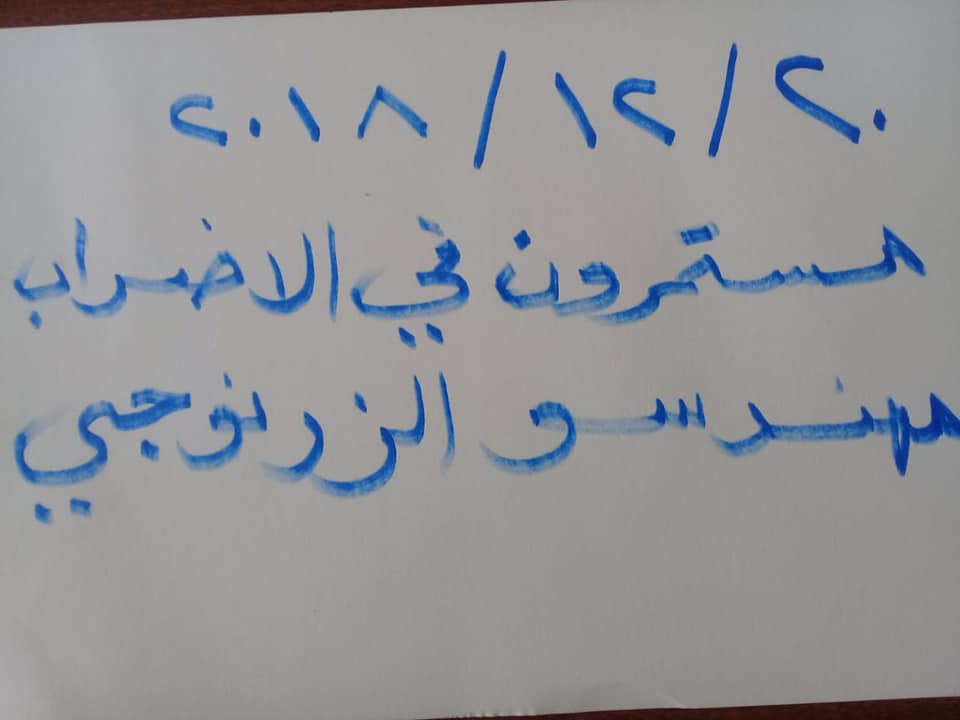 ٢٠/١٢/٢٠١٨
مستمرون في الاضراب
مهندسو الزرنوجي